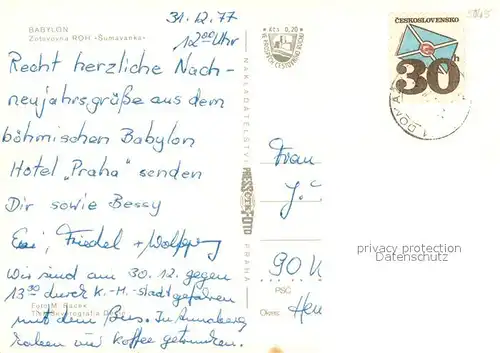 31.12.77
12⁰⁰ Uhr
BABYLON
Zotavovna ROH «Šumavanka»
Recht herzliche Nach-
neujahrsgrüße aus dem
böhmischen Babylon
Hotel „Praha" senden
Dir sowie Bessy
Friedel + Wolfgang
Wir sind am 30.12. gegen
13³⁰ durch K.-M.-Stadt gefahren
Foto M. Raček
mit dem Bus. In Annaberg
haben wir Kaffee getrunken.
NAKLADATELSTVÍ
PRESSFOTO
PRAHA
Kčs 0,20
ČESKOSLOVENSKO
30h
Frau
J.
90
PSČ
Okres:
privacy protection
Datenschutz